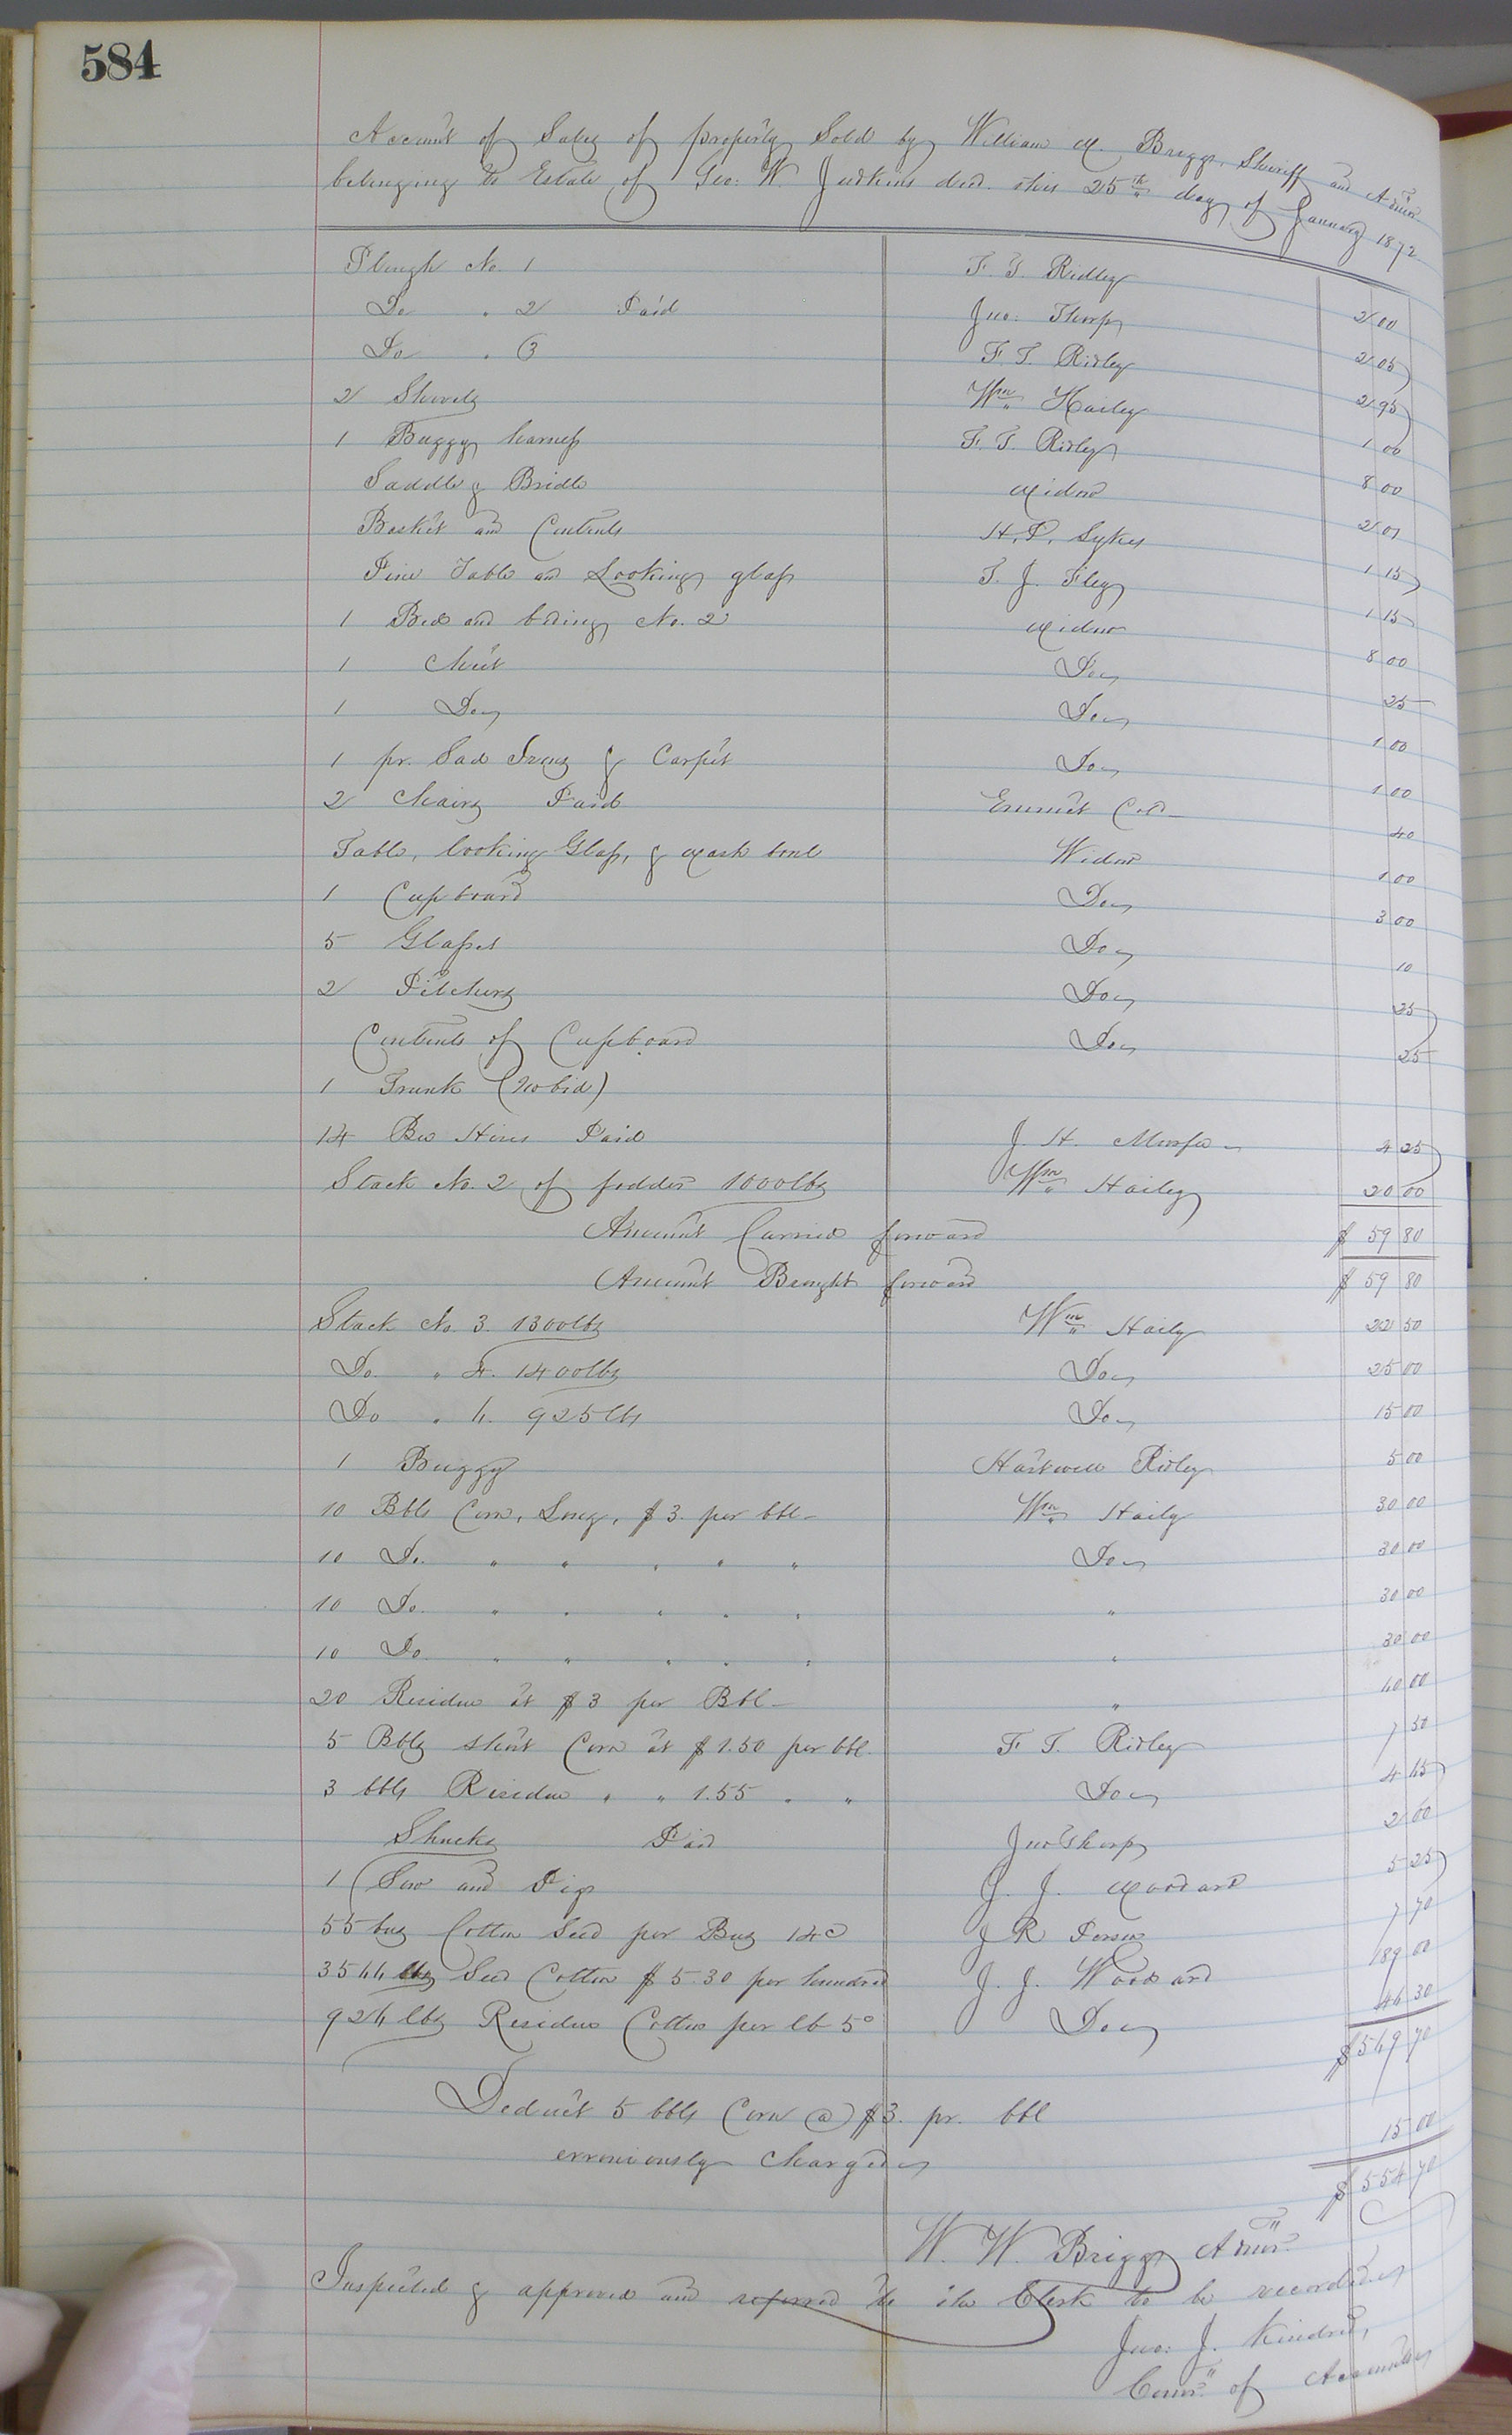 584
Account of Sales of property Sold by William W. Briggs, Sheriff and Admr
belonging to Estate of Geo: W. Judkins decd. this 25th day of January 1872
Plough No. 1 F. T. Ridley 2 00
Do " 2 Paid Jno: Thorp 2 05
Do " 3 F. T. Ridley 2 95
2 Shovels Wm Hailey 1 00
1 Buggy harness F. T. Ridley 8 00
Saddle & Bridle Widow 2 01
Basket and Contents H. P. Sykes 1 15
Pine Table and Looking glass T. J. 1 15
1 Bed and beding No. 2 Widow 8 00
1 Chest Do 25
1 Do Do 1 00
1 pr. Sad Irons & Carpet Do 1 00
2 Chairs Paid Emmet Cold 40
Table, looking Glass, & wash bowl Widow 1 00
1 Cupboard Do 3 00
5 Glasses Do 10
2 Pitchers Do 25
Contents of Cupboard Do 25
1 Trunk (No bid)
14 Bee Hives Paid J. H. 4 25
Stack No. 2 of fodder 1000lbs Wm Hailey 20 00
Amount Carried forward $ 59 80
Amount Brought forward $ 59 80
Stack No. 3. 1300lbs Wm Haily 22 50
Do. " 4. 1400lbs Do 25 00
Do " 5. 925lbs Do 15 00
1 Buggy Hartwell Ridley 5 00
10 Bbls Corn, Long, $3. per bbl Wm Haily 30 00
10 Do. " " " " " Do 30 00
10 Do. " " " " " " 30 00
10 Do. " " " " " " 30 00
20 Residue at $3 per Bbl " 60 00
5 Bbls short Corn at $1.50 per bbl. F T. Ridley 7 50
3 bbls Residue " " 1.55 " " Do 4 65
Shucks Paid Jno Thorp 2 00
1 Sow and Pigs J. J. Woodard 5 25
55 bus Cotton Seed per Bus 14c J R Person 7 70
3566 lbs Seed Cotton $5.30 per hundred J. J. Woodard 189 00
926 lbs Residue Cotton per lb 5c Do 46 30
$569 70
Deduct 5 bbls Corn @ $3. pr. bbl
erroniously Charged 15 00
$554 70
W. W. Briggs Admr.
Inspected & approved and referred to the Clerk to be recorded
Jno: J. Kindred,
Comr. of Accounts